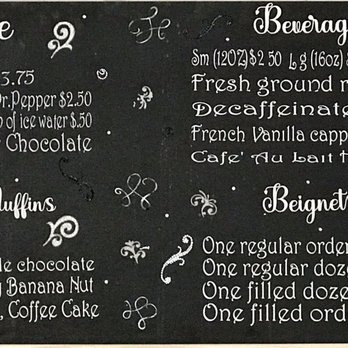 e
3.75
Dr.Pepper $2.50
of ice water $.50
Chocolate
Muffins
le chocolate
Banana Nut
, Coffee Cake
Beverag
Sm (12OZ)$2 50 Lg (16oz)
Fresh ground r
Decaffeinate
French Vanilla capp
Cafe' Au Lait
Beignet
One regular order
One regular doze
One filled doze
One filled ord